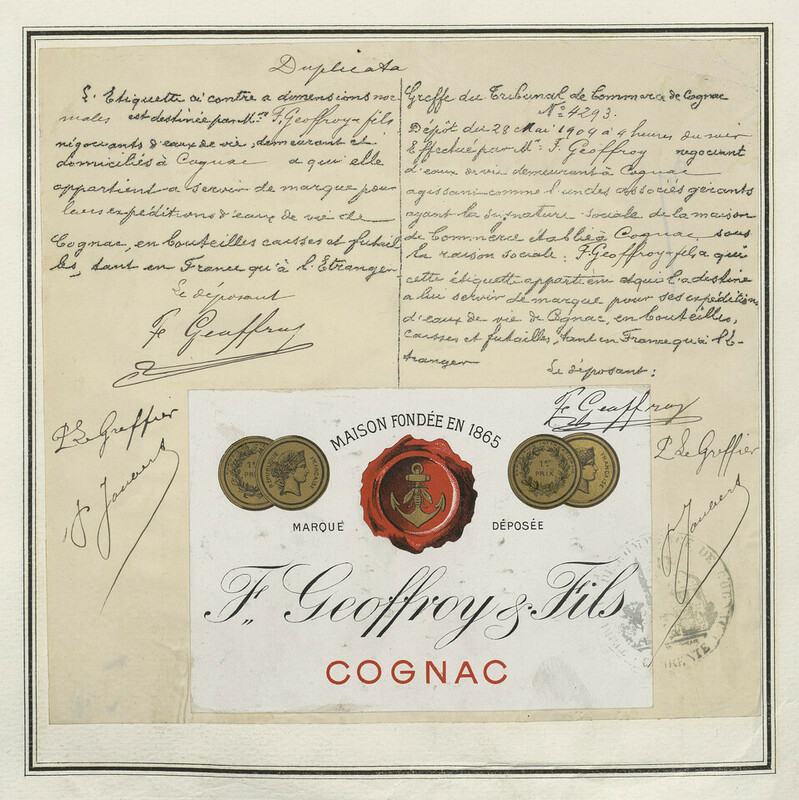 Duplicata
L'Etiquette ci contre a dimensions nor
males est destinée par Mrs F. Geoffroy & fils
négociants d'eaux de vie, demeurant et
domiciliés à Cognac a qui elle
appartient a servir de marque pour
leurs expéditions d'eaux de vie de
Cognac, en bouteilles caisses et futail
les, tant en France qu'à l'Etranger
Le déposant
F. Geoffroy
P. Le Greffier
Greffe du Tribunal de Commerce de Cognac
No 4293.
Dépôt du 28 Mai 1904 a 4 heures du soir
Effectué par Mr. F. Geoffroy negociant
d'eaux de vie demeurant à Cognac
agissant comme l'un des associés gérants
ayant la signature sociale de la maison
de Commerce établie à Cognac, sous
la raison sociale: F. Geoffroy & fils a qui
cette étiquette appartient et qui l'a destine
a lui servir de marque pour ses expéditions
d'eaux de vie de Cognac, en bouteilles,
caisses et futailles, tant en France qu'à l'E-
tranger
Le déposant:
F. Geoffroy
P. Le Greffier
MAISON FONDÉE EN 1865
1er PRIX
RÉPUBLIQUE FRANÇAISE
1er PRIX
FRANÇAISE
MARQUE DÉPOSÉE
F. Geoffroy & Fils
COGNAC